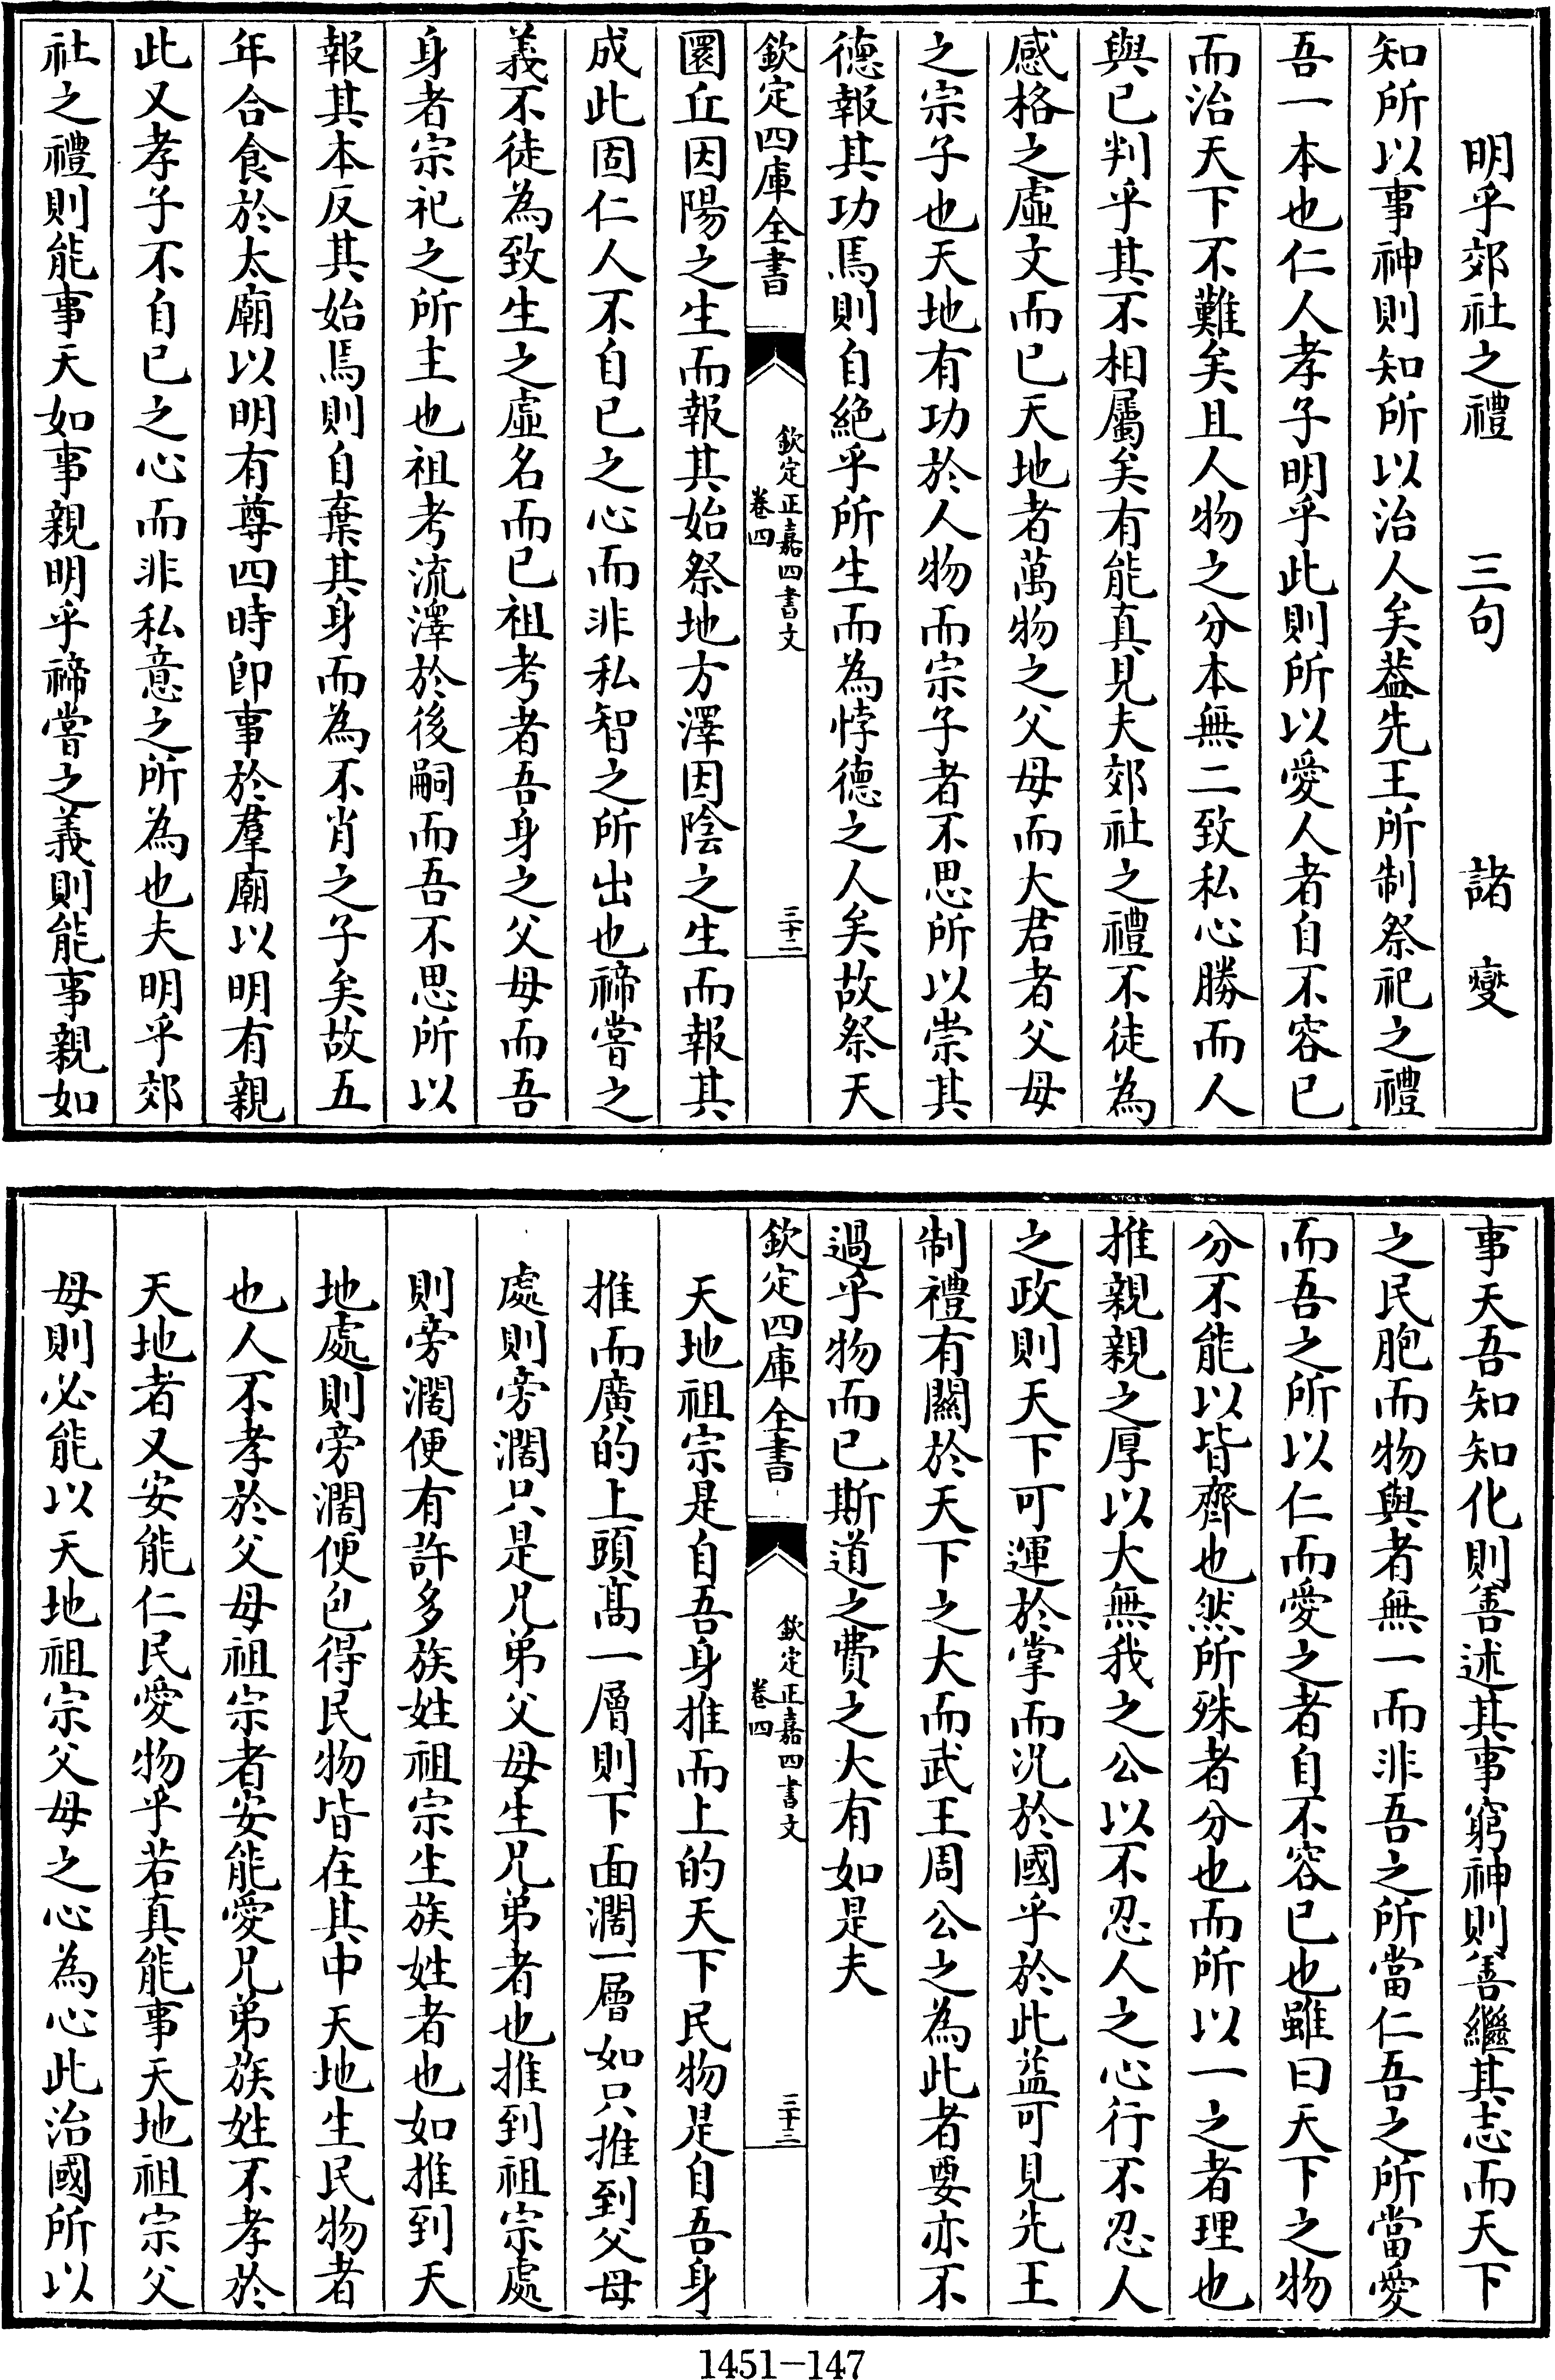 明乎郊社之禮　三句　　諸　燮
知所以事神則知所以治人矣葢先王所制祭祀之禮
吾一本也仁人孝子明乎此則所以愛人者自不容已
而治天下不難矣且人物之分本無二致私心勝而人
與已判乎其不相屬矣有能真見夫郊社之禮不徒為
感格之虛文而已天地者萬物之父母而大君者父母
之宗子也天地有功於人物而宗子者不思所以崇其
德報其功焉則自絶乎所生而為悖德之人矣故祭天
欽定四庫全書
欽定正嘉四書文
卷四
三十二
圜丘因陽之生而報其始祭地方澤因陰之生而報其
成此固仁人不自已之心而非私智之所出也禘嘗之
義不徒為致生之虛名而已祖考者吾身之父母而吾
身者宗祀之所主也祖考流澤於後嗣而吾不思所以
報其本反其始焉則自棄其身而為不肖之子矣故五
年合食於太廟以明有尊四時卽事於羣廟以明有親
此又孝子不自已之心而非私意之所為也夫明乎郊
社之禮則能事天如事親明乎禘嘗之義則能事親如
事天吾知知化則善述其事窮神則善繼其志而天下
之民胞而物與者無一而非吾之所當仁吾之所當愛
而吾之所以仁而愛之者自不容已也雖曰天下之物
分不能以皆齊也然所殊者分也而所以一之者理也
推親親之厚以大無我之公以不忍人之心行不忍人
之政則天下可運於掌而況於國乎於此益可見先王
制禮有關於天下之大而武王周公之為此者要亦不
過乎物而已斯道之費之大有如是夫
欽定四庫全書
欽定正嘉四書文
卷四
三十三
天地祖宗是自吾身推而上的天下民物是自吾身
推而廣的上頭髙一層則下面濶一層如只推到父母
處則旁濶只是兄弟父母生兄弟者也推到祖宗處
則旁濶便有許多族姓祖宗生族姓者也如推到天
地處則旁濶便包得民物皆在其中天地生民物者
也人不孝於父母祖宗者安能愛兄弟族姓不孝於
天地者又安能仁民愛物乎若真能事天地祖宗父
母則必能以天地祖宗父母之心為心此治國所以
1451-147